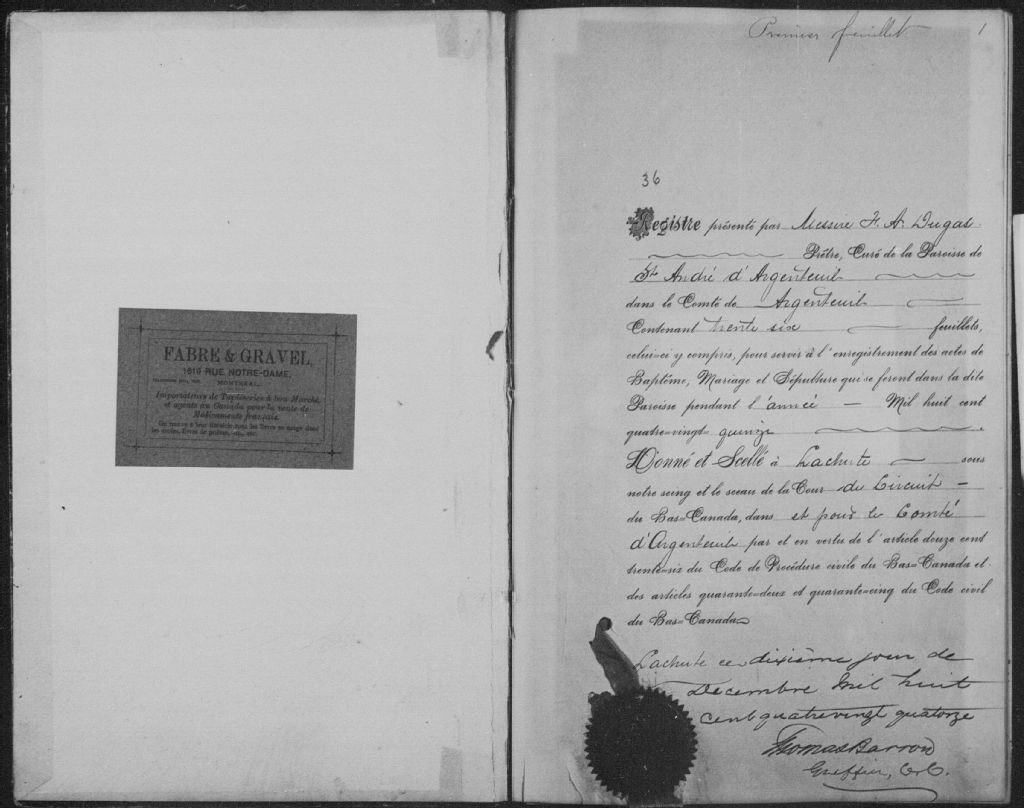 FABRE & GRAVEL,
1619 RUE NOTRE-DAME,
MONTREAL.
Importateurs de Tapisseries à bon Marché,
et agents au Canada pour la vente de
Médicaments français.
On trouve à leur librairie tous les livres en usage dans
les écoles, livres de prières, etc., etc.
Premier feuillet 1
36
Registre présenté par Messire F. A. Dugas
Prêtre, Curé de la Paroisse de
St André d'Argenteuil
dans le Comté de Argenteuil
Contenant trente six feuillets,
celui=ci y compris, pour servir à l'enregistrement des actes de
Baptême, Mariage et Sépulture qui se feront dans la dite
Paroisse pendant l'année — Mil huit cent
quatre=vingt= quinze
Donné et Scellé à Lachute sous
notre seing et le sceau de la Cour du Circuit —
du Bas=Canada, dans et pour le Comté
d'Argenteuil par et en vertu de l'article douze cent
trente=six du Code de Procédure civile du Bas=Canada et
des articles quarante=deux et quarante=cinq du Code civil
du Bas=Canada
Lachute ce dixième jour de
Décembre Mil huit
cent quatrevingt quatorze
Thomas Barron
Greffier, C.C.